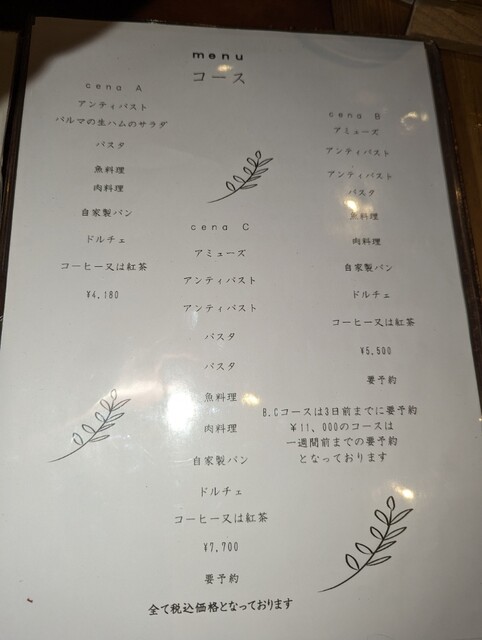 menu
コース
cena A
アンティパスト
パルマの生ハムのサラダ
パスタ
魚料理
肉料理
自家製パン
ドルチェ
コーヒー又は紅茶
¥4,180
cena B
アミューズ
アンティパスト
アンティパスト
パスタ
魚料理
肉料理
自家製パン
ドルチェ
コーヒー又は紅茶
¥5,500
要予約
cena C
アミューズ
アンティパスト
アンティパスト
パスタ
パスタ
魚料理
肉料理
自家製パン
ドルチェ
コーヒー又は紅茶
¥7,700
要予約
B.Cコースは3日前までに要予約
¥11、000のコースは
一週間前までの要予約
となっております
全て税込価格となっております